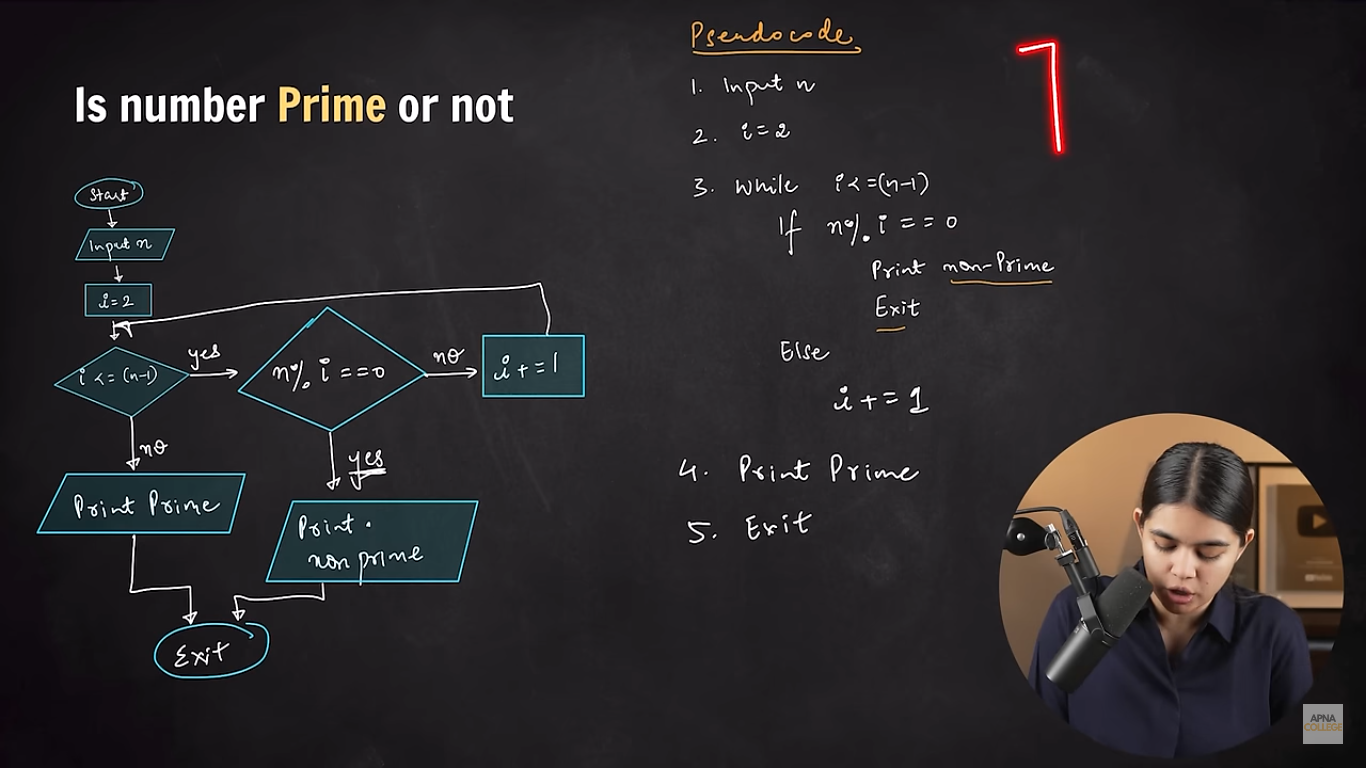 Is number Prime or not
Start
Input n
i=2
i <= (n-1)
yes
no
n% i ==0
no
yes
i += 1
Print Prime
Print
non prime
Exit
Pseudocode
1. Input n
2. i=2
3. While i<=(n-1)
If n% i == 0
Print non-Prime
Exit
Else
i += 1
4. Print Prime
5. Exit
7
APNA
COLLEGE